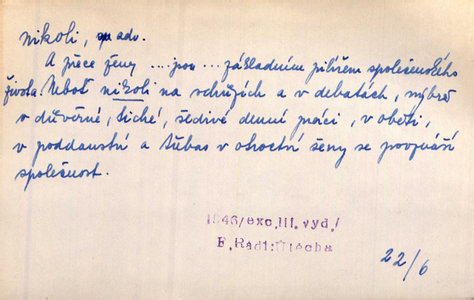 nikoli, adv.
A přece ženy ... jsou ... základním pilířem společenského
života. Neboť nikoli na schůzích a v debatách, nýbrž
v důvěrné, tiché, šedivé denní práci, v oběti,
v poddanství a třebas v ženy se povznáší
společnost.
1946/exc.III.vyd./
E.Rádl:Útěcha
22/6